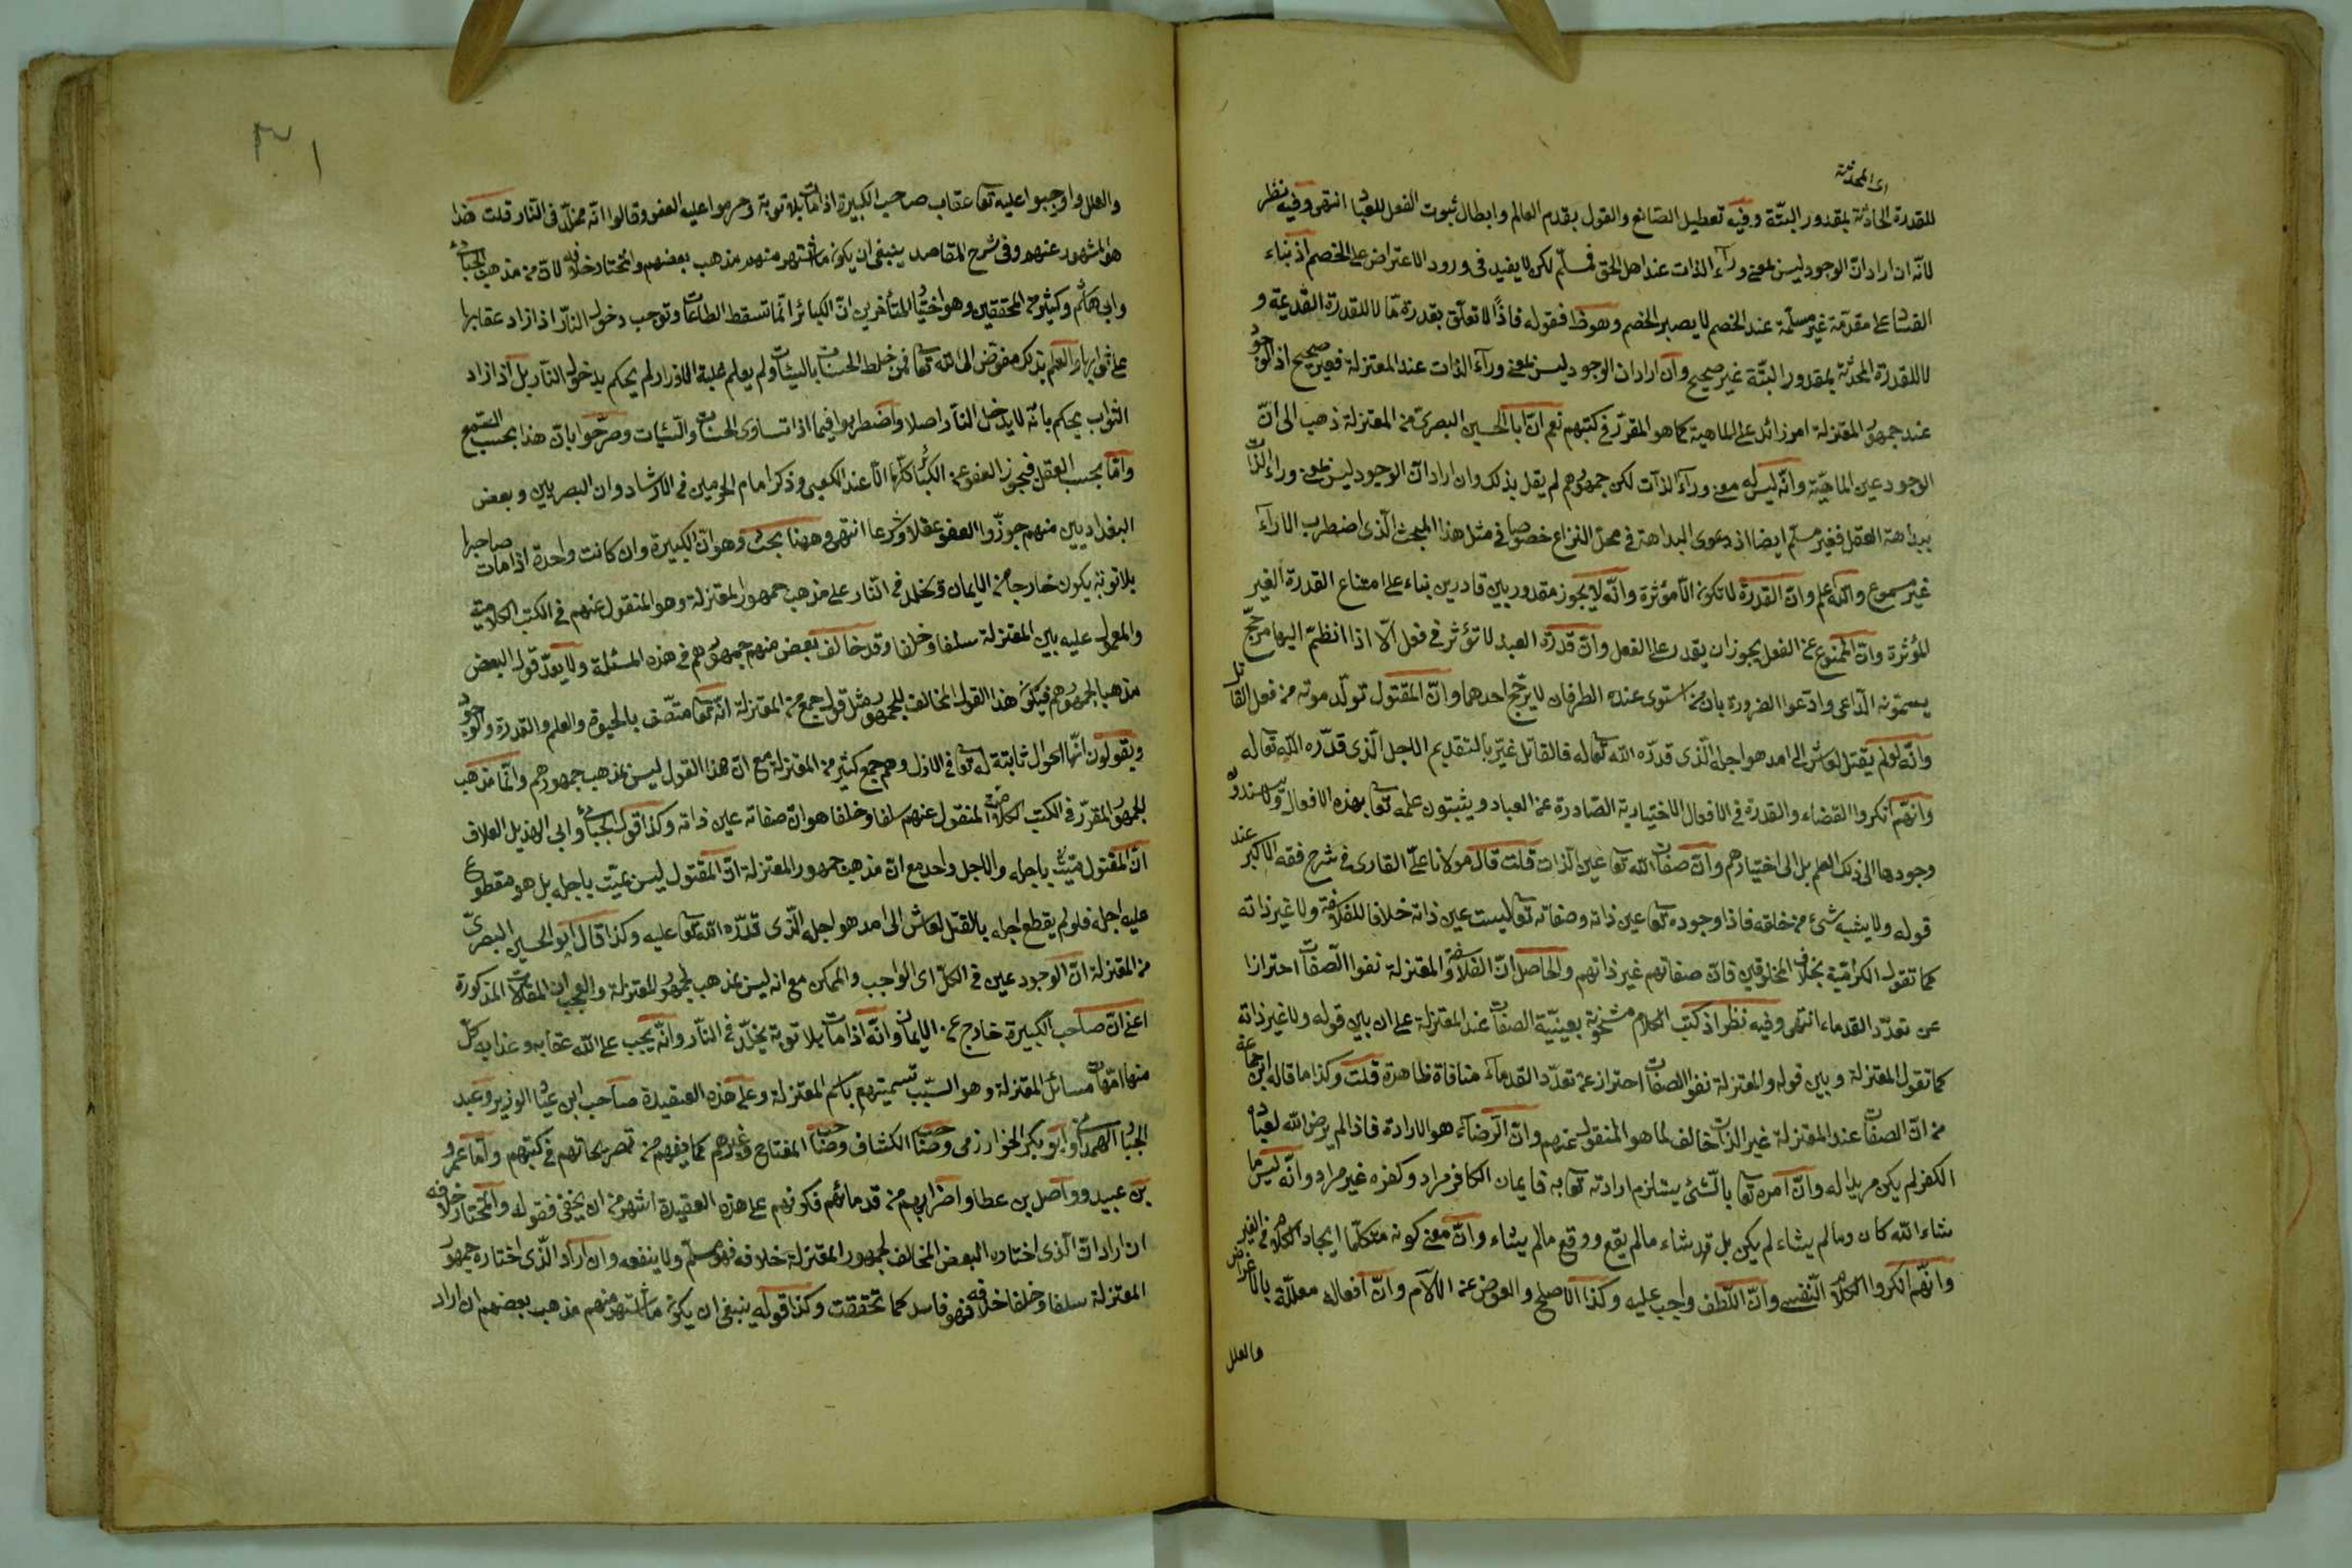 اى المحدثة
للقدرة الحادثة بمقدور البتّة وفيه تعطيل الصّانع والقول بقدم العالم وابطال ثبوت الفعل للعباد انتهى وفيه نظر
لانّه ان اراد انّ الوجود ليس بمعنى وراء الذات عند اهل الحق فمسلّم لكن لا يفيد فى ورود الاعتراض على الخصم اذ بناء
الفساد على مقدّمة غير مسلّمة عند الخصم لا يصير الخصم وهو ظ فقوله فاذًا لا تعلّق بقدرة ما لا للقدرة القديمة و
لا للقدرة المحدثة بمقدور البتّة غير صحيح وان اراد ان الوجود ليس بمعنى وراء الذات عند المعتزلة فغير صحيح اذ الوجود
عند جمهور المعتزلة امر زائد على الماهية كما هو المقرّر فى كتبهم نعم انّ ابا الحسين البصرى من المعتزلة ذهب الى انّ
الوجود عين الماهيّة وانّه ليس له معنى وراء الذات لكن جمهورهم لم يقل بذلك وان اراد انّ الوجود ليس بمعنى وراء الذات
ببداهة العقل فغير مسلّم ايضا اذ دعوى البداهة فى محلّ النزاع خصوصا فى مثل هذا المبحث الّذى اضطرب الاراء
غير مسموع والله اعلم وانّ القدرة لا تكون الّا مؤثرة وانّه لا يجوز مقدور بين قادرين بناء على امتناع القدرة الغير
المؤثرة وانّ الممنوع عن الفعل يجوز ان يقدر على الفعل وانّ قدرة العبد لا تؤثر فى فعل الّا اذا انظمّ اليها مرجّح
يسمّونه الدّاعى وادّعوا الضرورة بان من استوى عنده الطرفان لا يرجّح احدهما وانّ المقتول تولّد موته من فعل القاتل
وانّه لو لم يقتل لعاش الى امد هو اجله الّذى قدّره الله تعالى له فالقاتل غيّر بالتقديم الاجل الّذى قدّره الله تعالى له
وانّهم انكروا القضاء والقدرة فى الافعال الاختيارية الصّادرة عن العباد ويثبتون علمه تعالى بهذه الافعال ولا يسندون
وجودها الى ذلك العلم بل الى اختيارهم وانّ صفات الله تعالى عين الذات قلت قال مولانا على القارى فى شرح فقه الاكبر عند
قوله ولا يشبه شئ من خلقه فاذا وجوده تعالى عين ذاته وصفاته تعالى ليست عين ذاته خلافا للفلاسفة ولا غير ذاته
كما تقول الكرّاميّة بخلاف المخلوقين فانّ صفاتهم غير ذاتهم والحاصل انّ الفلاسفة والمعتزلة نفوا الصّفات احترازا
عن تعدّد القدماء انتهى وفيه نظر اذ كتب الكلام مشحونة بعينيّة الصفات عند المعتزلة على ان بين قوله ولا غير ذاته
كما تقول المعتزلة وبين قوله والمعتزلة نفوا الصفات احتراز عن تعدّد القدماء منافاة ظاهرة قلت وكذا ما قاله ابن جماعة
من انّ الصفات عند المعتزلة غير الذات خالف لما هو المنقول عنهم وانّ الرّضاء هو الارادة فاذا لم يرض الله لعباده
الكفر لم يكن مريدا له وانّ امره تعالى بالشّئ يستلزم ارادته تعالى به فايمان الكافر مراد وكفره غير مراد وانّه ليس ما
شاء الله كان وما لم يشاء لم يكن بل قد شاء ما لم يقع ووقع ما لم يشاء وانّ معنى كونه متكلّما ايجاد الكلام فى الغير
وانّهم انكروا الكلام النّفسى وانّ اللّطف واجب عليه وكذا الاصلح والعوض عن الآلام وانّ افعاله معلّلة بالاغراض
والعلل
والعلل واوجبوا عليه تعالى عقاب صاحب الكبيرة اذا مات بلا توبة وحرموا عليه العفو وقالوا انّه مخلّد فى النّار قلت هذا
هو المشهور عنهم وفى شرح المقاصد ينبغى ان يكون ما اشتهر منهم مذهب بعضهم والمختار خلافه لانّ من مذهب الجبائى
وابى هاشم وكثير من المحققين وهو اختيار المتأخرين انّ الكبائر انّما تسقط الطاعات وتوجب دخول النّار اذا زاد عقابها
على ثوابها والعلم بذلك مفوّض الى الله تعالى فمن خلط الحسنات بالسيئات ولم يعلم غلبة الاوزار لم يحكم بدخول النّار بل اذا زاد
الثواب يحكم بانّه لا يدخل النّار اصلا واضطربوا فيما اذا تساوى الحسنات والسّيئات وصرّحوا بانّ هذا بحسب السّمع
وامّا بحسب العقل فيجوز العفو عن الكبائر كلّها الّا عند الكعبى وذكر امام الحرمين فى الارشاد وان البصريين وبعض
البغداديين منهم جوّزوا العفو عقلا وشرعا انتهى وههنا بحث وهو انّ الكبيرة وان كانت واحدة اذا مات صاحبها
بلا توبة يكون خارجا من الايمان ويخلد فى النّار على مذهب جمهور المعتزلة وهو المنقول عنهم فى الكتب الكلامية
والمعول عليه بين المعتزلة سلفا وخلفا وقد خالف بعض منهم جمهورهم فى هذه المسئلة ولا يعدّ قول البعض
مذهبا لجمهورهم فيكون هذا القول المخالف للجمهور مثل قول جمع من المعتزلة انّه تعالى متّصف بالحيوة والعلم والقدرة والوجود
ويقولون انّها احوال ثابتة له تعالى فى الازل وهم جمع كثير من المعتزلة مع انّ هذا القول ليس بمذهب جمهورهم وانّما مذهب
الجمهور المقرّر فى الكتب الكلامية المنقول عنهم سلفا وخلفا هو انّ صفاته عين ذاته وكذا قول الجبائى وابى الهذيل العلاف
انّ المقتول ميّت باجله والاجل واحد مع انّ مذهب جمهور المعتزلة انّ المقتول ليس بميّت باجله بل هو مقطوع
عليه اجله فلو لم يقطع اجله بالقتل لعاش الى امد هو اجله الّذى قدّره الله تعالى عليه وكذا قال ابو الحسين البصرىّ
من المعتزلة انّ الوجود عين فى الكلّ اى الواجب والممكن مع انه ليس بمذهب لجمهور المعتزلة والعجب ان المقالات المذكورة
اعنى انّ صاحب الكبيرة خارج عن الايمان وانّه اذا مات بلا توبة يخلّد فى النّار وانّه يجب على الله عقابه وعذابه كلّ
منها امّهات مسائل المعتزلة وهو السّبب تسميتهم باسم المعتزلة وعلى هذه العقيدة صاحب ابن عبّاد الوزير وعبد
الجبّار الهمدانى وابو بكر الخوارزمى وصاحب الكشاف وصاحب المفتاح وغيرهم كما يفهم من تصريحاتهم فى كتبهم وامّا عمرو
بن عبيد وواصل بن عطا واضرابهم من قدمائهم فكونهم على هذه العقيدة اشهر من ان يخفى فقوله والمختار خلافه
ان اراد انّ الّذى اختاره البعض المخالف لجمهور المعتزلة خلافه فهو مسلّم ولا ينفعه وان اراد الّذى اختاره جمهور
المعتزلة سلفا وخلفا خلافه فهو فاسد كما تحققت وكذا قوله ينبغى ان يكون ما اشتهر منهم مذهب بعضهم ان اراد